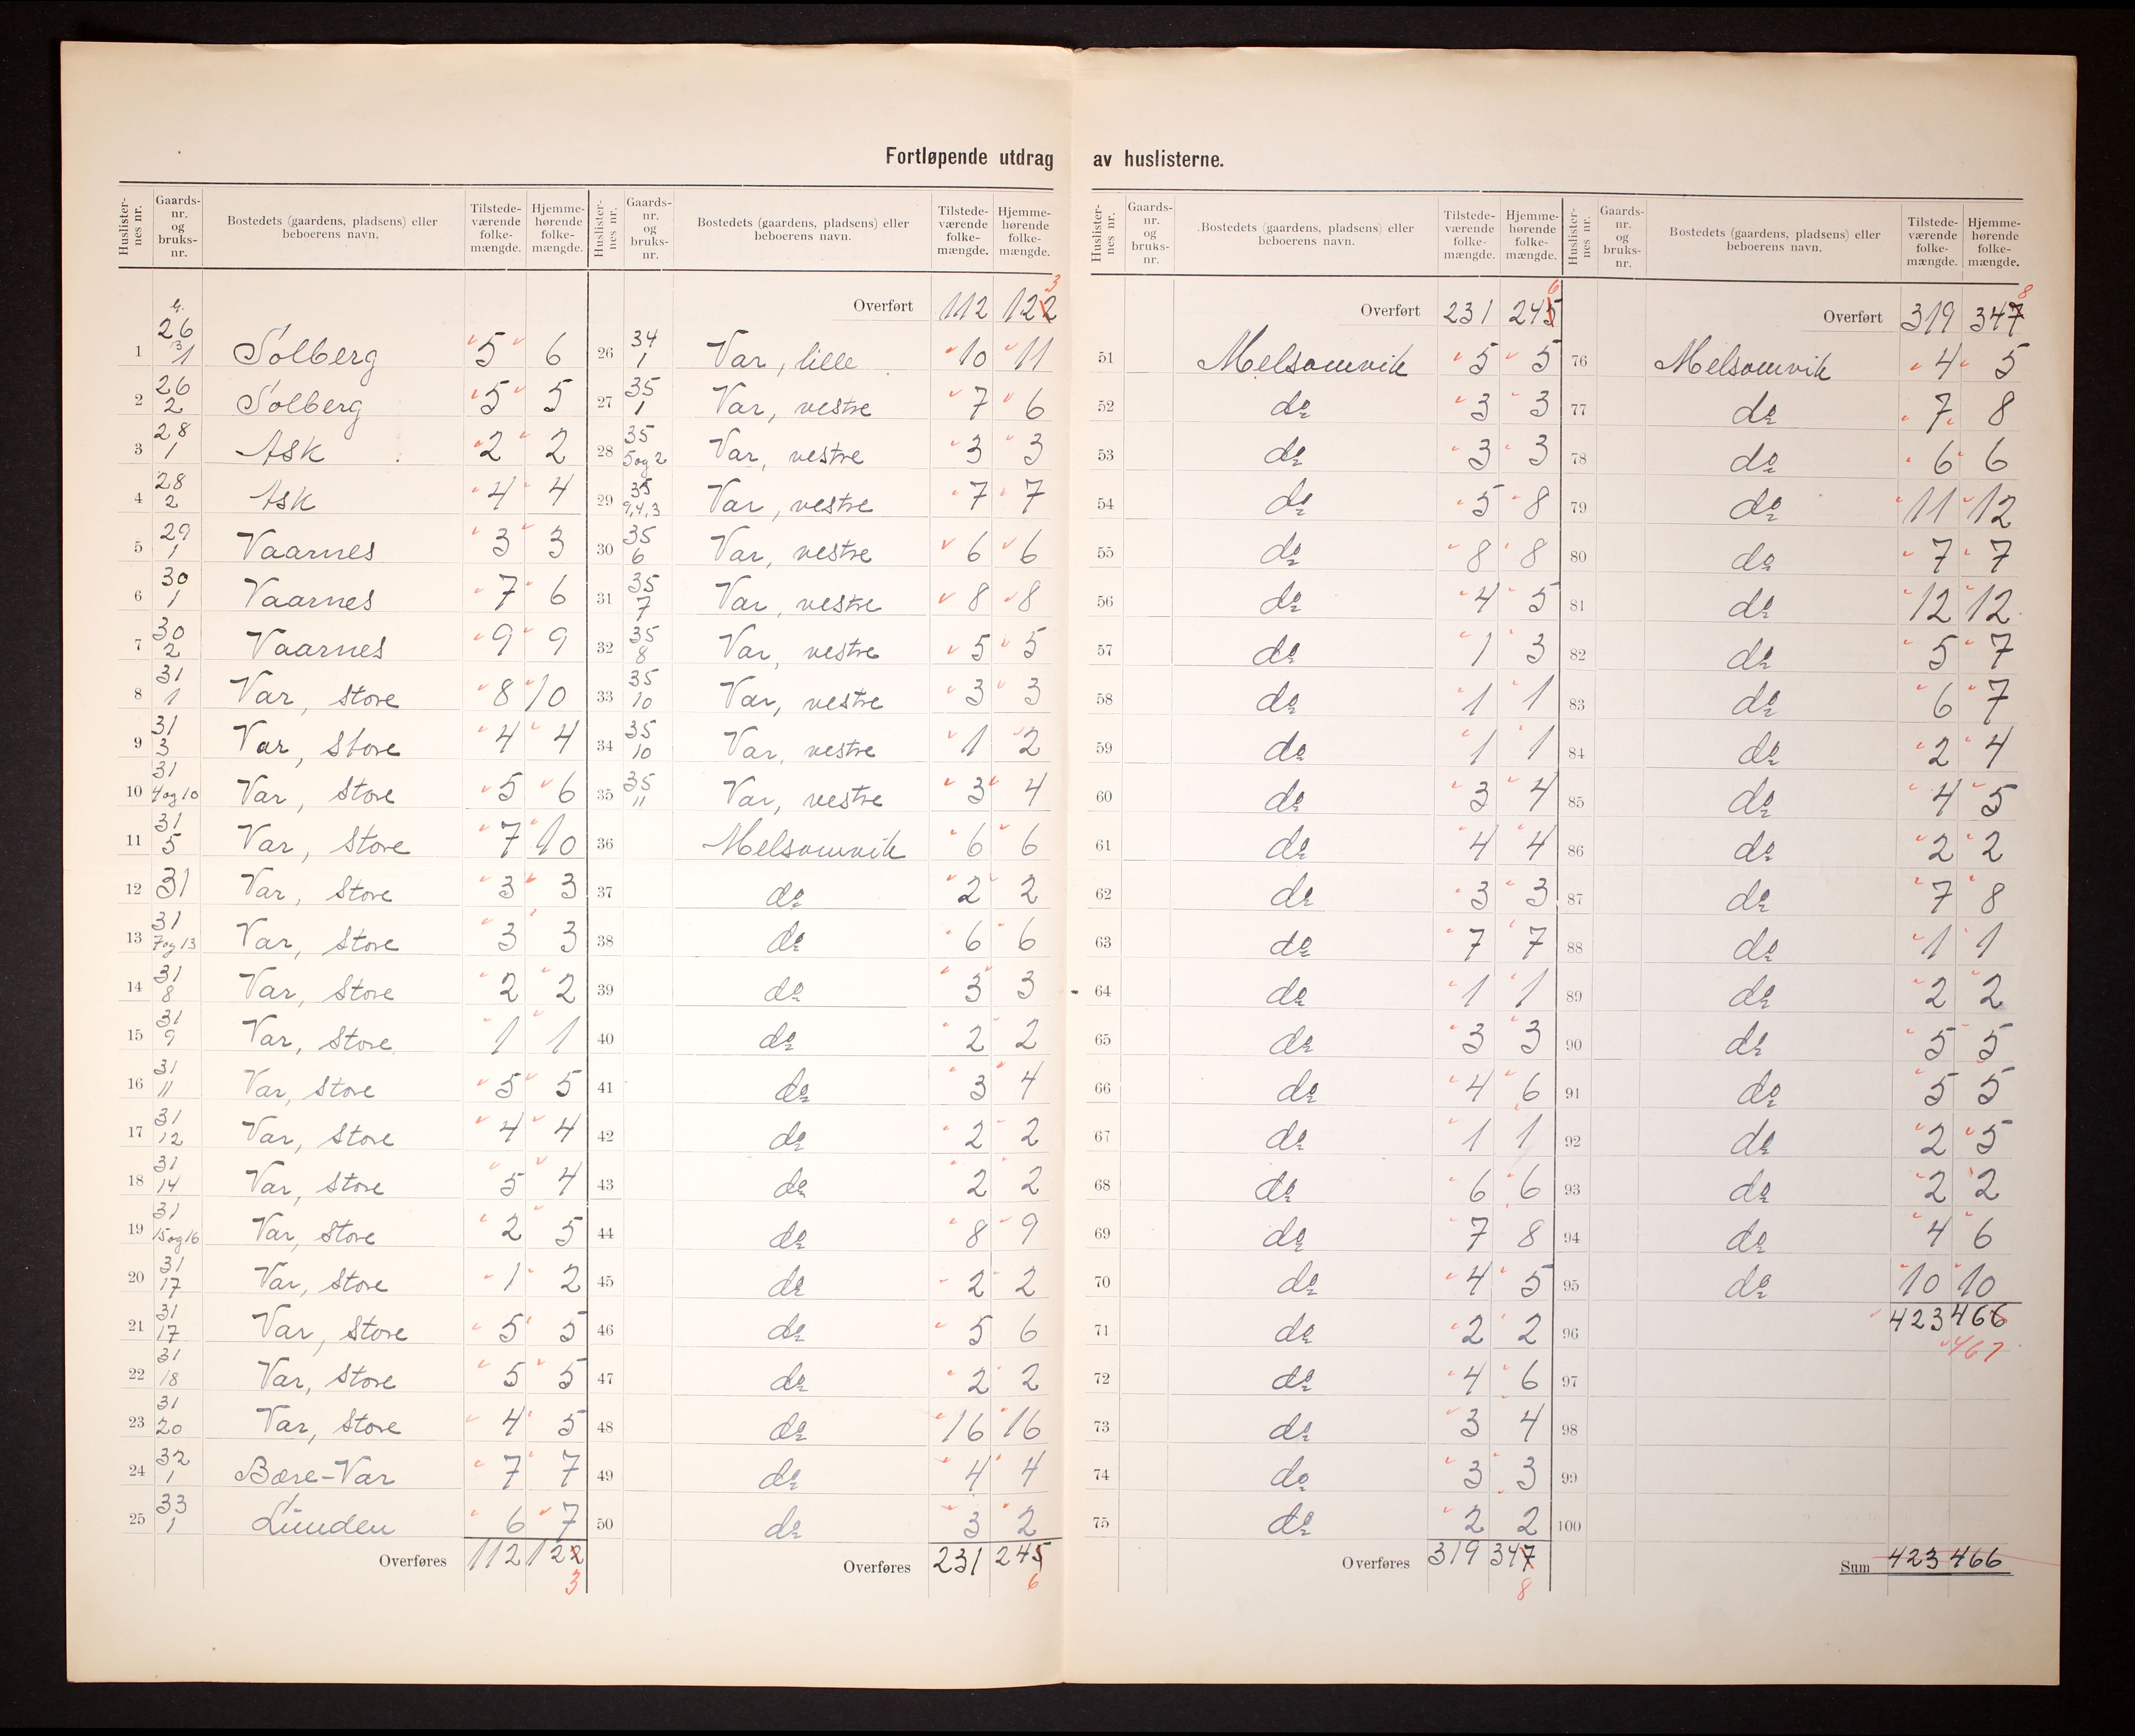 Fortløpende utdrag av huslisterne.
Huslisternes nr. Gaards-nr. og bruks-nr. Bostedets (gaardens, pladsens) eller beboerens navn. Tilstedeværende folkemængde. Hjemmehørende folkemængde.
G.
1 26 3 1 Solberg 5 6
2 26 2 Solberg 5 5
3 28 1 Ask 2 2
4 28 2 Ask 4 4
5 29 1 Vaarnes 3 3
6 30 1 Vaarnes 7 6
7 30 2 Vaarnes 9 9
8 31 1 Var, store 8 10
9 31 3 Var, store 4 4
10 31 4 og 10 Var, store 5 6
11 31 5 Var, store 7 10
12 31 Var, store 3 3
13 31 7 og 13 Var, store 3 3
14 31 8 Var, store 2 2
15 31 9 Var, store 1 1
16 31 11 Var, store 5 5
17 31 12 Var, store 4 4
18 31 14 Var, store 5 4
19 31 15 og 16 Var, store 2 5
20 31 17 Var, store 1 2
21 31 17 Var, store 5 5
22 31 18 Var, store 5 5
23 31 20 Var, store 4 5
24 32 1 Bære-Var 7 7
25 33 1 Lunden 6 7
Overføres 112 122
3
Huslisternes nr. Gaards-nr. og bruks-nr. Bostedets (gaardens, pladsens) eller beboerens navn. Tilstedeværende folkemængde. Hjemmehørende folkemængde.
Overført 112 122 3
26 34 1 Var, lille 10 11
27 35 1 Var, vestre 7 6
28 35 5 og 2 Var, vestre 3 3
29 35 9,4,3 Var, vestre 7 7
30 35 6 Var, vestre 6 6
31 35 7 Var, vestre 8 8
32 35 8 Var, vestre 5 5
33 35 10 Var, vestre 3 3
34 35 10 Var, vestre 1 2
35 35 11 Var, vestre 3 4
36 Melsomvik 6 6
37 do 2 2
38 do 6 6
39 do 3 3
40 do 2 2
41 do 3 4
42 do 2 2
43 do 2 2
44 do 8 9
45 do 2 2
46 do 5 6
47 do 2 2
48 do 16 16
49 do 4 4
50 do 3 2
Overføres 231 245
6
Huslisternes nr. Gaards-nr. og bruks-nr. Bostedets (gaardens, pladsens) eller beboerens navn. Tilstedeværende folkemængde. Hjemmehørende folkemængde.
Overført 231 245 6
51 Melsomvik 5 5
52 do 3 3
53 do 3 3
54 do 5 8
55 do 8 8
56 do 4 5
57 do 1 3
58 do 1 1
59 do 1 1
60 do 3 4
61 do 4 4
62 do 3 3
63 do 7 7
64 do 1 1
65 do 3 3
66 do 4 6
67 do 1 1
68 do 6 6
69 do 7 8
70 do 4 5
71 do 2 2
72 do 4 6
73 do 3 4
74 do 3 3
75 do 2 2
Overføres 319 347
8
Huslisternes nr. Gaards-nr. og bruks-nr. Bostedets (gaardens, pladsens) eller beboerens navn. Tilstedeværende folkemængde. Hjemmehørende folkemængde.
Overført 319 347 8
76 Melsomvik 4 5
77 do 7 8
78 do 6 6
79 do 11 12
80 do 7 7
81 do 12 12
82 do 5 7
83 do 6 7
84 do 2 4
85 do 4 5
86 do 2 2
87 do 7 8
88 do 1 1
89 do 2 2
90 do 5 5
91 do 5 5
92 do 2 5
93 do 2 2
94 do 4 6
95 do 10 10
96 423 466
467
97
98
99
100
Sum 423 466